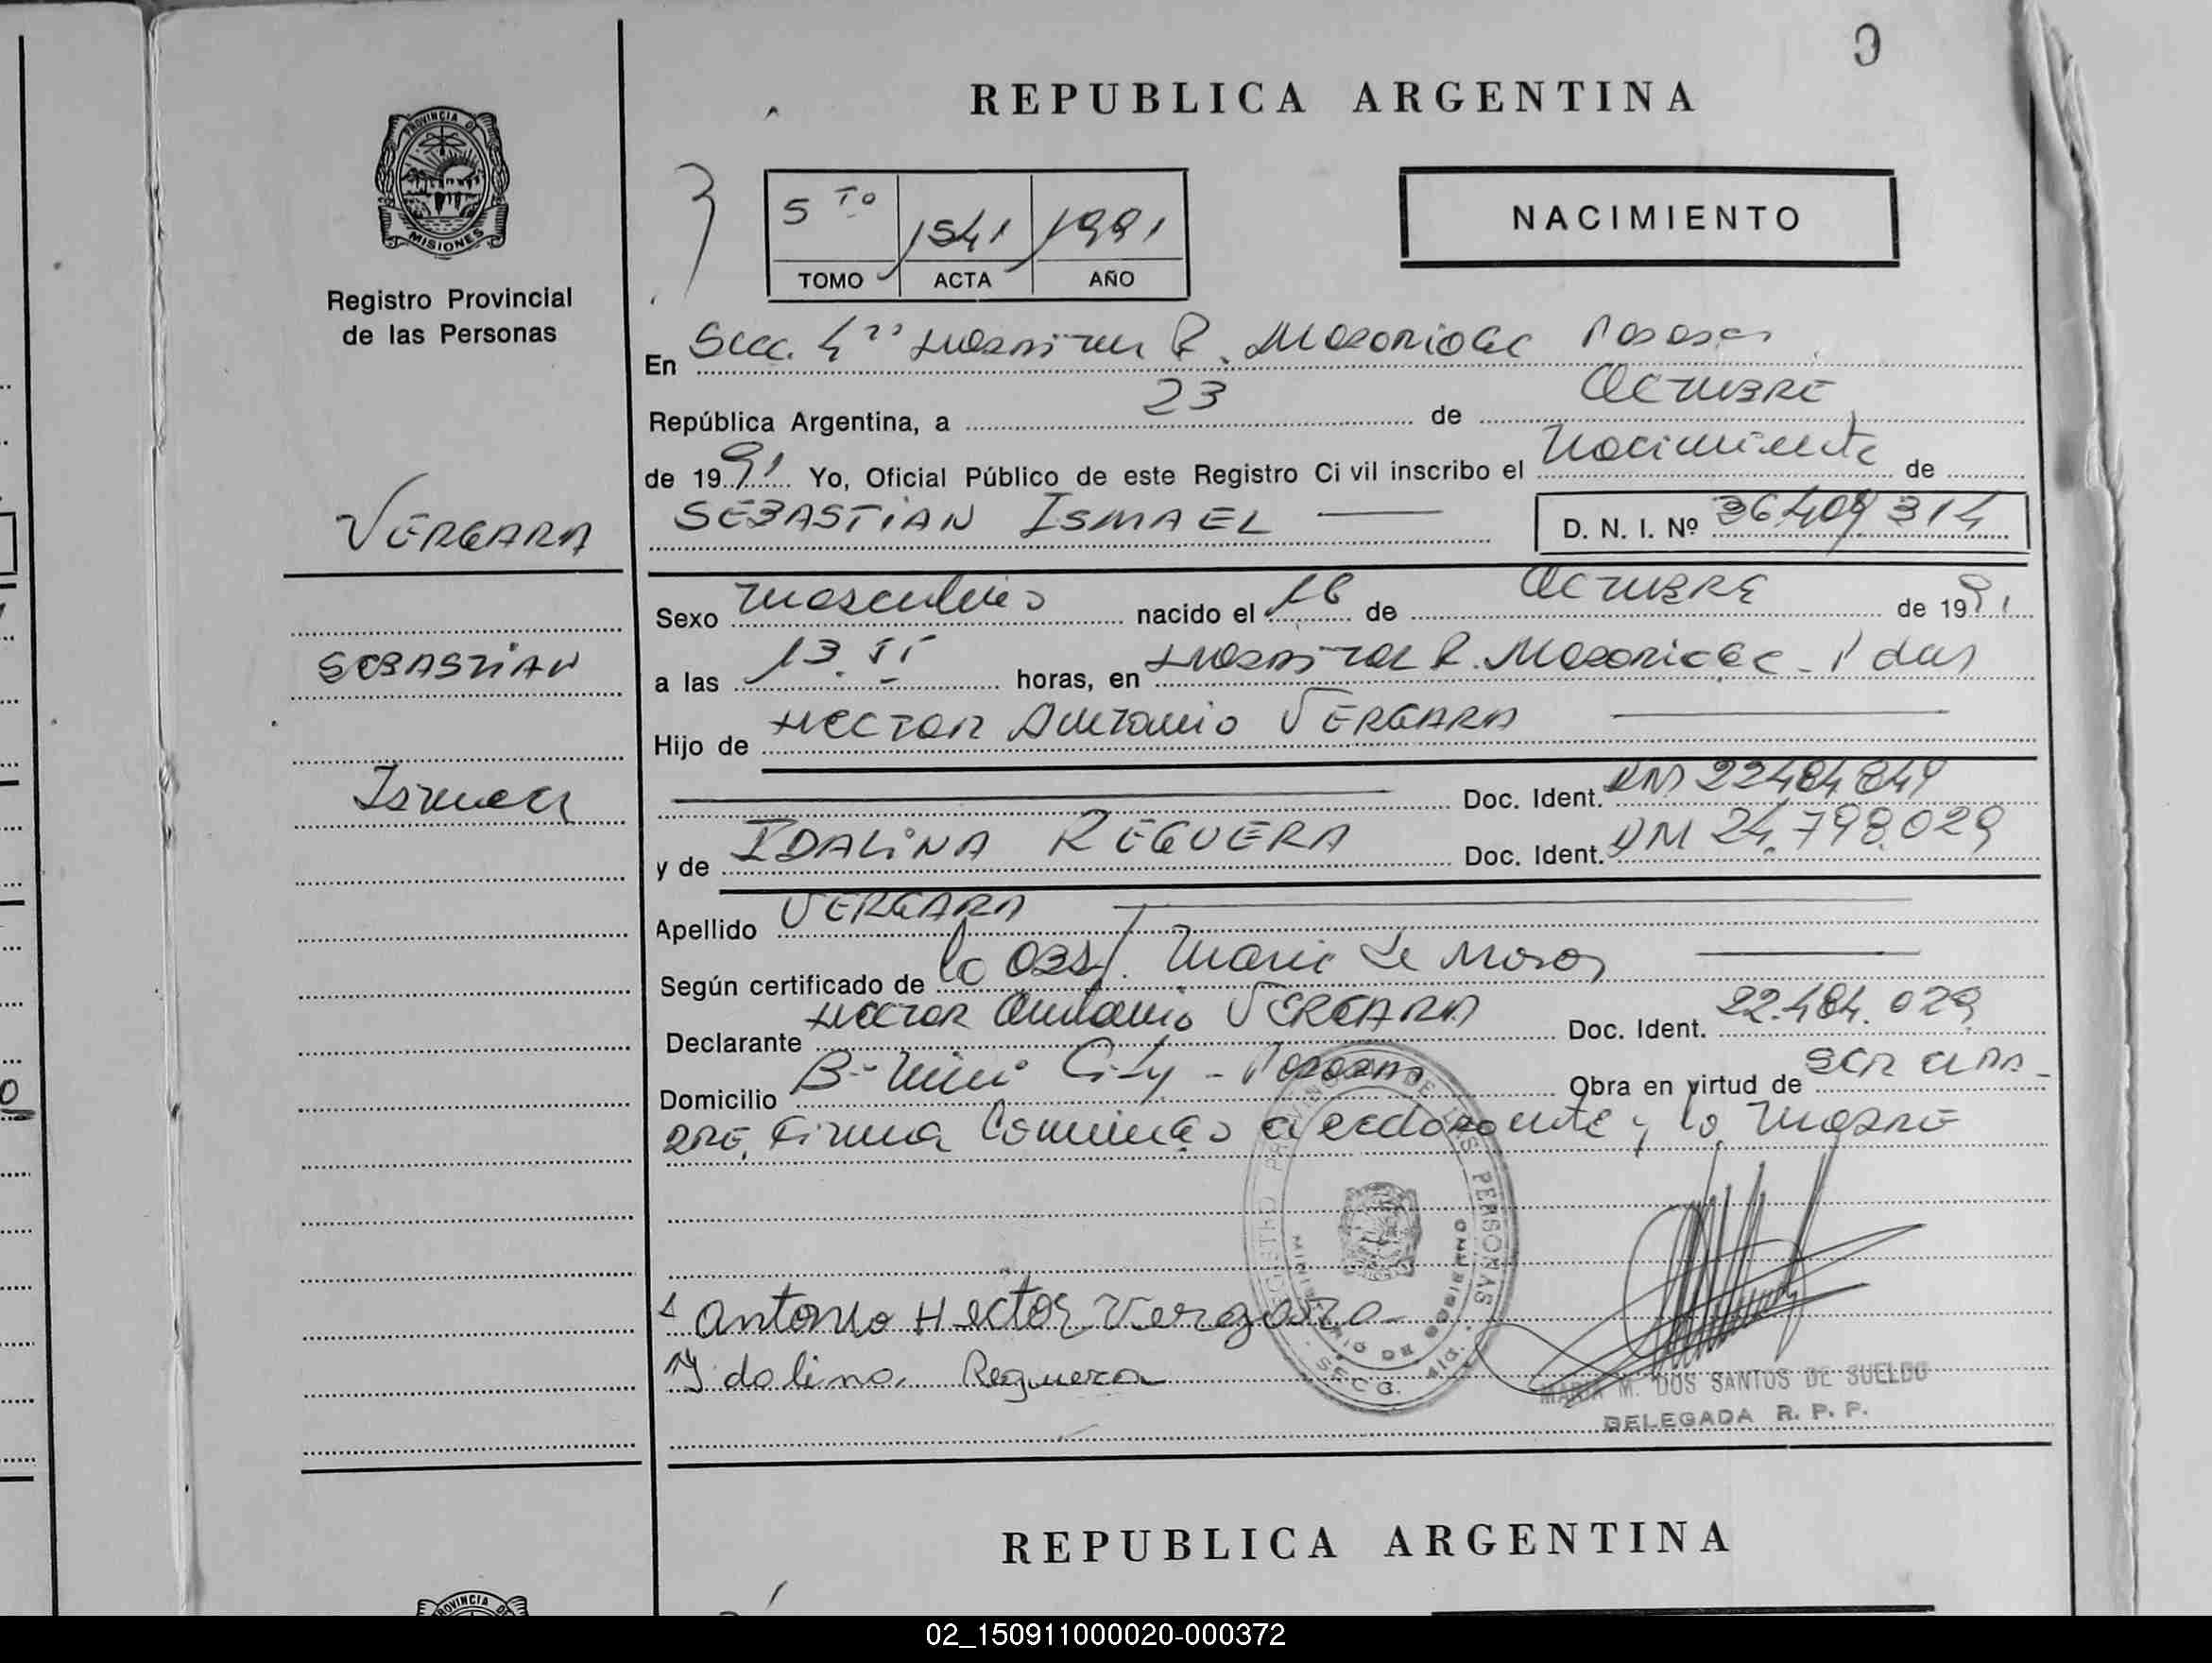 REPUBLICA ARGENTINA
NACIMIENTO
5 to 1541 1991
TOMO ACTA AÑO
PROVINCIA DE
MISIONES
Registro Provincial
de las Personas
En Secc. 4ta Hospital R. Madariaga Posadas
República Argentina, a 23 de Octubre
de 1991 Yo, Oficial Público de este Registro Civil inscribo el Nacimiento de
VERGARA
SEBASTIAN ISMAEL D. N. I. Nº 36.409.314
Sexo masculino nacido el 16 de Octubre de 1991
SEBASTIAN
a las 13. horas, en Hospital R. Madariaga - Pdas
Hijo de Hector Antonio VERGARA
Ismael
Doc. Ident. DNI 22484849
y de IDALINA REGUERA Doc. Ident. DNI 24.798.029
Apellido VERGARA
Según certificado de la Obst. Maria de
Declarante Hector Antonio VERGARA Doc. Ident. 22.484.029
Domicilio Bº Mini City - Posadas Obra en virtud de ser el pa-
dre, firma conmigo el declarante y la madre
Antonio Hector Vergara
Idalina Reguera
REGISTRO PROVINCIAL DE LAS PERSONAS
MINISTERIO DE GOBIERNO
MARIA M. DOS SANTOS DE SUELDO
DELEGADA R. P. P.
REPUBLICA ARGENTINA
PROVINCIA DE
02_150911000020-000372